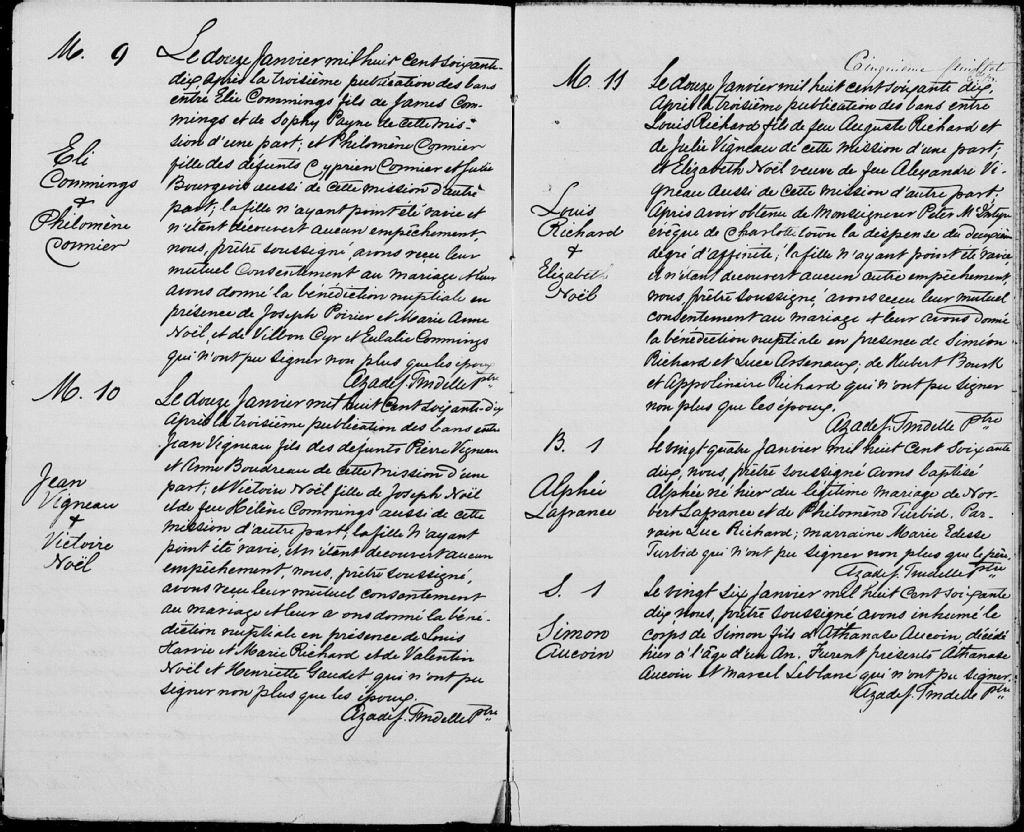 M. 9
Eli
Commings
&
Philomène
Cormier
Le douze Janvier mil huit cent soixante-
dix, après la troisième publication des bans
entre Elie Commings fils de James Com-
mings et de Sophy Payne de cette mis-
sion d'une part; et Philomène Cormier
fille des défunts Cyprien Cormier et Julie
Bourgeois aussi de cette mission d'autre
part; la fille n'ayant point été ravie et
n'étant découvert aucun empêchement,
nous, prêtre soussigné avons reçu leur
mutuel consentement au mariage et leur
avons donné la bénédiction nuptiale en
présence de Joseph Poirier et Marie Anne
Noël, et de Villbon Cyr et Eulalie Commings
qui n'ont pu signer non plus que les époux
Azade J. Trudelle Ptre
M. 10
Jean
Vigneau
&
Victoire
Noël
Le douze Janvier mil huit cent soixante-dix
Après la troisième publication des bans entre
Jean Vigneau fils des défunts Pierre Vigneau
et Anne Boudreau de cette Mission d'une
part; et Victoire Noël fille de Joseph Noël
et de feu Hélène Commings aussi de cette
mission d'autre part; la fille n'ayant
point été ravie, et n'étant découvert aucun
empêchement, nous, prêtre soussigné,
avons reçu leur mutuel consentement
au mariage et leur a ons donné la béné-
diction nuptiale en présence de Louis
Harvie et Marie Richard et de Valentin
Noël et Henriette Gaudet qui n'ont pu
signer non plus que les époux.
Azade J. Trudelle Ptre
Cinquième feuillet
M. 11
Louis
Richard
&
Elizabeth
Noël
Le douze Janvier mil huit cent soixante dix,
Après la troisième publication des bans entre
Louis Richard fils de feu Auguste Richard et
de Julie Vigneau de cette mission d'une part,
et Elizabeth Noël veuve de feu Alexandre Vi-
gneau aussi de cette mission d'autre part,
Après avoir obtenu de Monseigneur Peter McIntyre
évêque de Charlottetown la dispense du deuxième
degré d'affinité; la fille n'ayant point été ravie
et n'étant découvert aucun autre empêchement,
nous, prêtre soussigné, avons reçu leur mutuel
consentement au mariage et leur avons donné
la bénédiction nuptiale en présence de Simion
Richard et Luce Arsenaux; de Hubert Bourk
et Appolinaire Richard qui n'ont pu signer
non plus que les époux.
Azade J. Trudelle Ptre
B. 1
Alphée
Lafrance
Le vingt quatre Janvier mil huit cent soixante
dix, nous, prêtre soussigné avons baptisé
Alphée né hier du légitime mariage de Nor-
bert Lafrance et de Philomène Turbid. Par-
rain Luc Richard; marraine Marie Edesse
Turbid qui n'ont pu signer non plus que le père
Azade J. Trudelle Ptre
S. 1
Simon
Aucoin
Le vingt six Janvier mil huit cent soixante
dix, nous, prêtre soussigné avons inhumé le
corps de Simon fils d'Athanase Aucoin, décédé
hier à l'âge d'un An. Furent présents Athanase
Aucoin et Marcel Leblanc qui n'ont pu signer.
Azade J. Trudelle Ptre